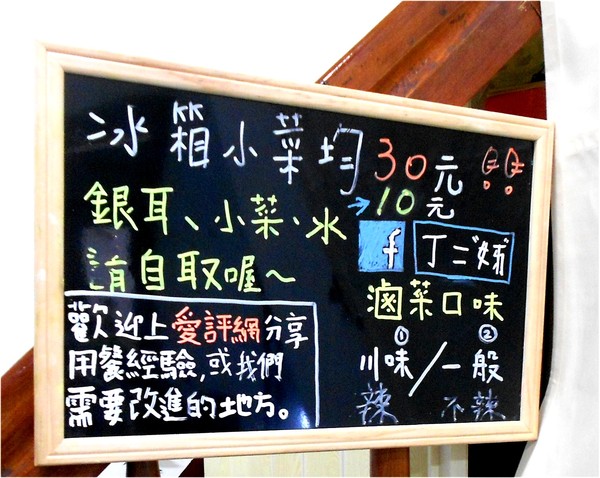 冰箱小菜均30元!!
→10元
銀耳、小菜、水
請自取喔～
f 丁ご姊
滷菜口味
① ②
川味／一般
辣 不辣
歡迎上愛評網分享
用餐經驗,或我們
需要改進的地方。